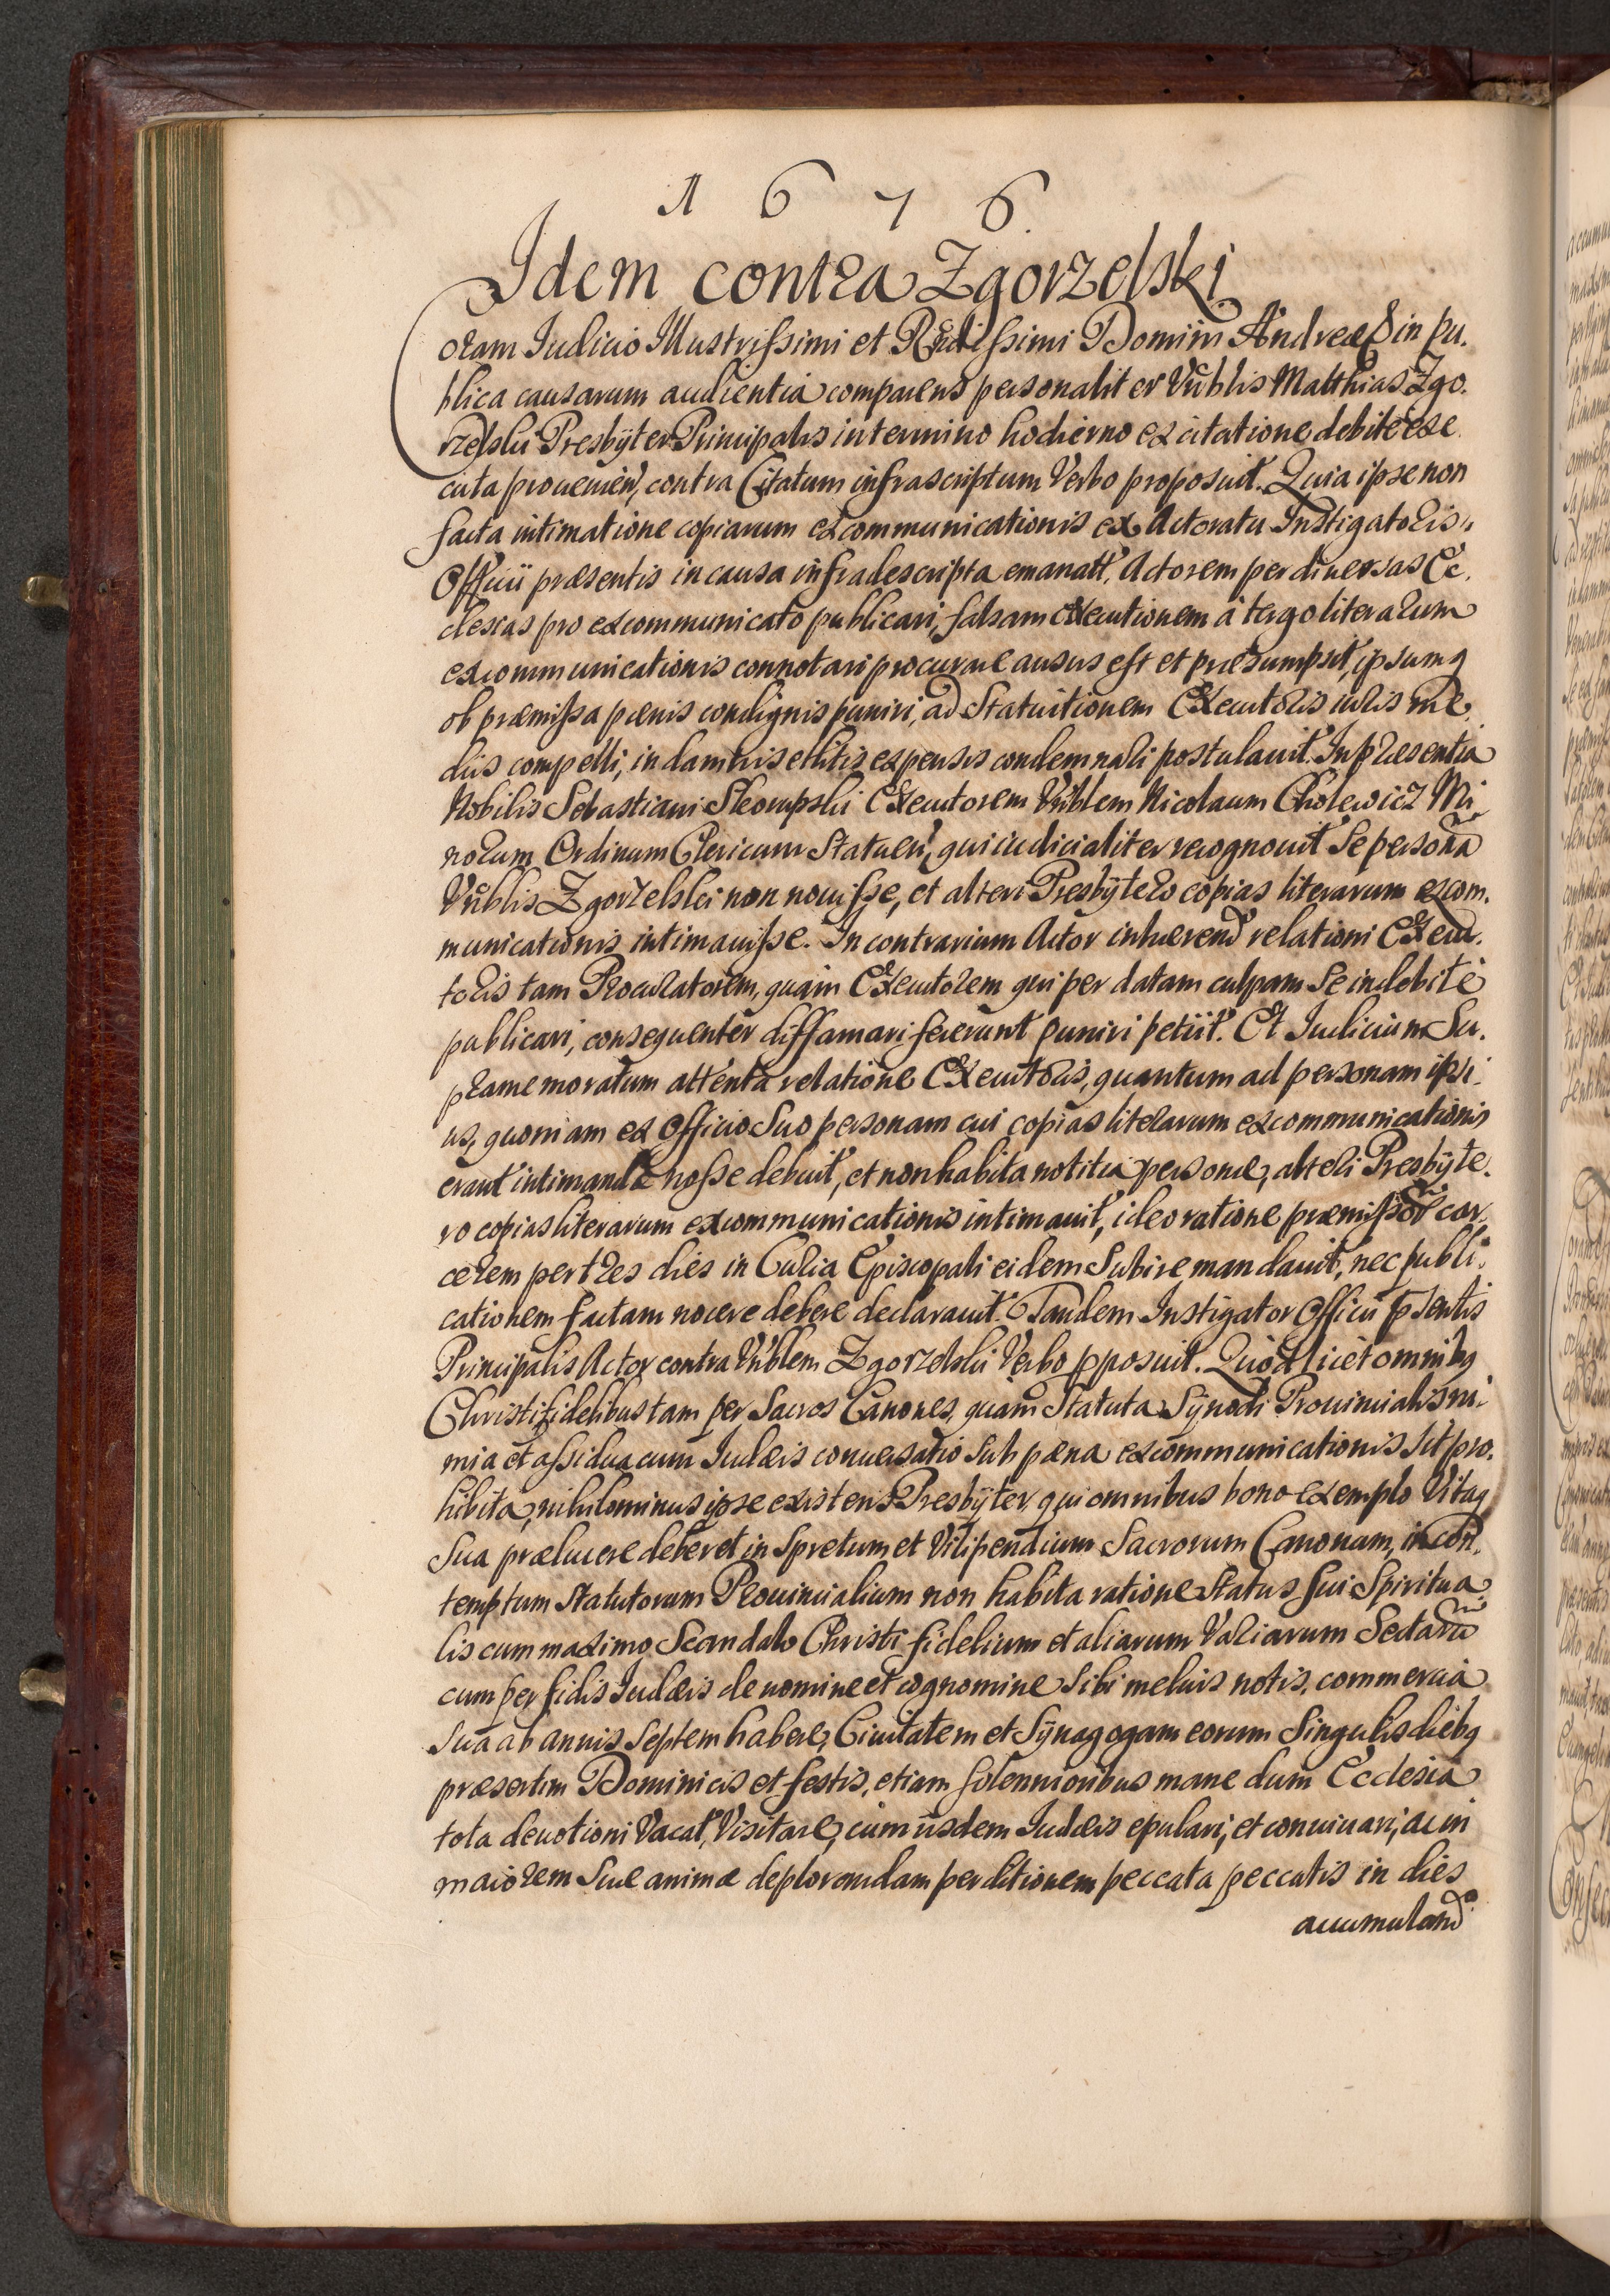 1676
Idem contra Zgorzelski
Coram Iudicio Illustrissimi et Rndissimi Domini Andreae in pu-
blica causarum audientia comparens personaliter Vnblis Matthias Zgo-
rzelski Presbÿter Principalis in termino hodierno ex citatione debite exe
cuta proueniẽn, contra Citatum infrascriptum Verbo proposuit. Quia ipse non
facta intimatione copiarum excommunicationis ex Actoratu Instigatoris
Officii præsentis in causa infradescripta emanatt, Actorem per diuersas Ec-
clesias pro excommunicato publicari, falsam Executionem à tergo literarum
excommunicationis connotari procurare ausus est et præsumpsit, ipsumq
ob præmissa pænis condignis puniri, ad Statuitionem Executoris iuris me-
diis compelli, in damnis et litis expensis condemnari postulauit. In præsentia
Nobilis Sebastiani Skorupski Executorem Vnblem Nicolaum Cholewicz Mi-
norum Ordinum Clericum Statuen, qui iudicialiter recognouit Se personã
Vnblis Zgorzelski non nouisse, et alteri Presbÿtero copias literarum excom-
municationis intimauisse. In contrarium Actor inhærend relationi Execu-
toris tam Procuratorem, quàm Executorem qui per datam culpam Se indebitè
publicari, consequenter diffamari fecerunt puniri petiit. Et Iudicium Su-
pramemoratum attenta relatione Executoris, quantum ad personam ipsi-
us, quoniam ex Officio Suo personam cui copias literarum excommunicationis
erant intimandæ nosse debuit, et non habita notitia personæ, alteri Presbÿte-
ro copias literarum excommunicationis intimauit, ideo ratione præmissor car-
cerem per tres dies in Curia Episcopali eidem Subire mandauit, nec publi-
cationem factam nocere debere declarauit. Tandem Instigator Officii pñsentis
Principalis Actor contra Vnblem Zgorzelski Verbo pposuit. Quòd licet omnibq
Christifidelibus tam per Sacros Canones, quàm Statuta Sÿnodi Prouincialis ni-
mia et assidua cum Iudæis conuersatio Sub pæna excommunicationis Sit pro-
hibita, nihilominus ipse existens Presbÿter, qui omnibus bono exemplo Vitaq
Sua prælucere deberet in Spretum et Vilipendium Sacrorum Canonum, in con-
temptum Statutorum Prouincialium non habita ratione Status Sui Spiritua
lis cum maximo Scandalo Christi fidelium et aliarum Variarum Sectarũ
cum perfidis Iudæis de nomine et cognomine Sibi melius notis, commercia
Sua ab annis Septem habere, Ciuitatem et Sÿnagogam eorum Singulis diebq
præsertim Dominicis et festis, etiam Solennioribus mane dum Ecclesia
tota deuotioni Vacat, Visitare, cum iisdem Iudæis epulari, et conuiuari, ac in
maiorem Suæ animæ deplorandam perditionem peccata peccatis in dies
accumuland